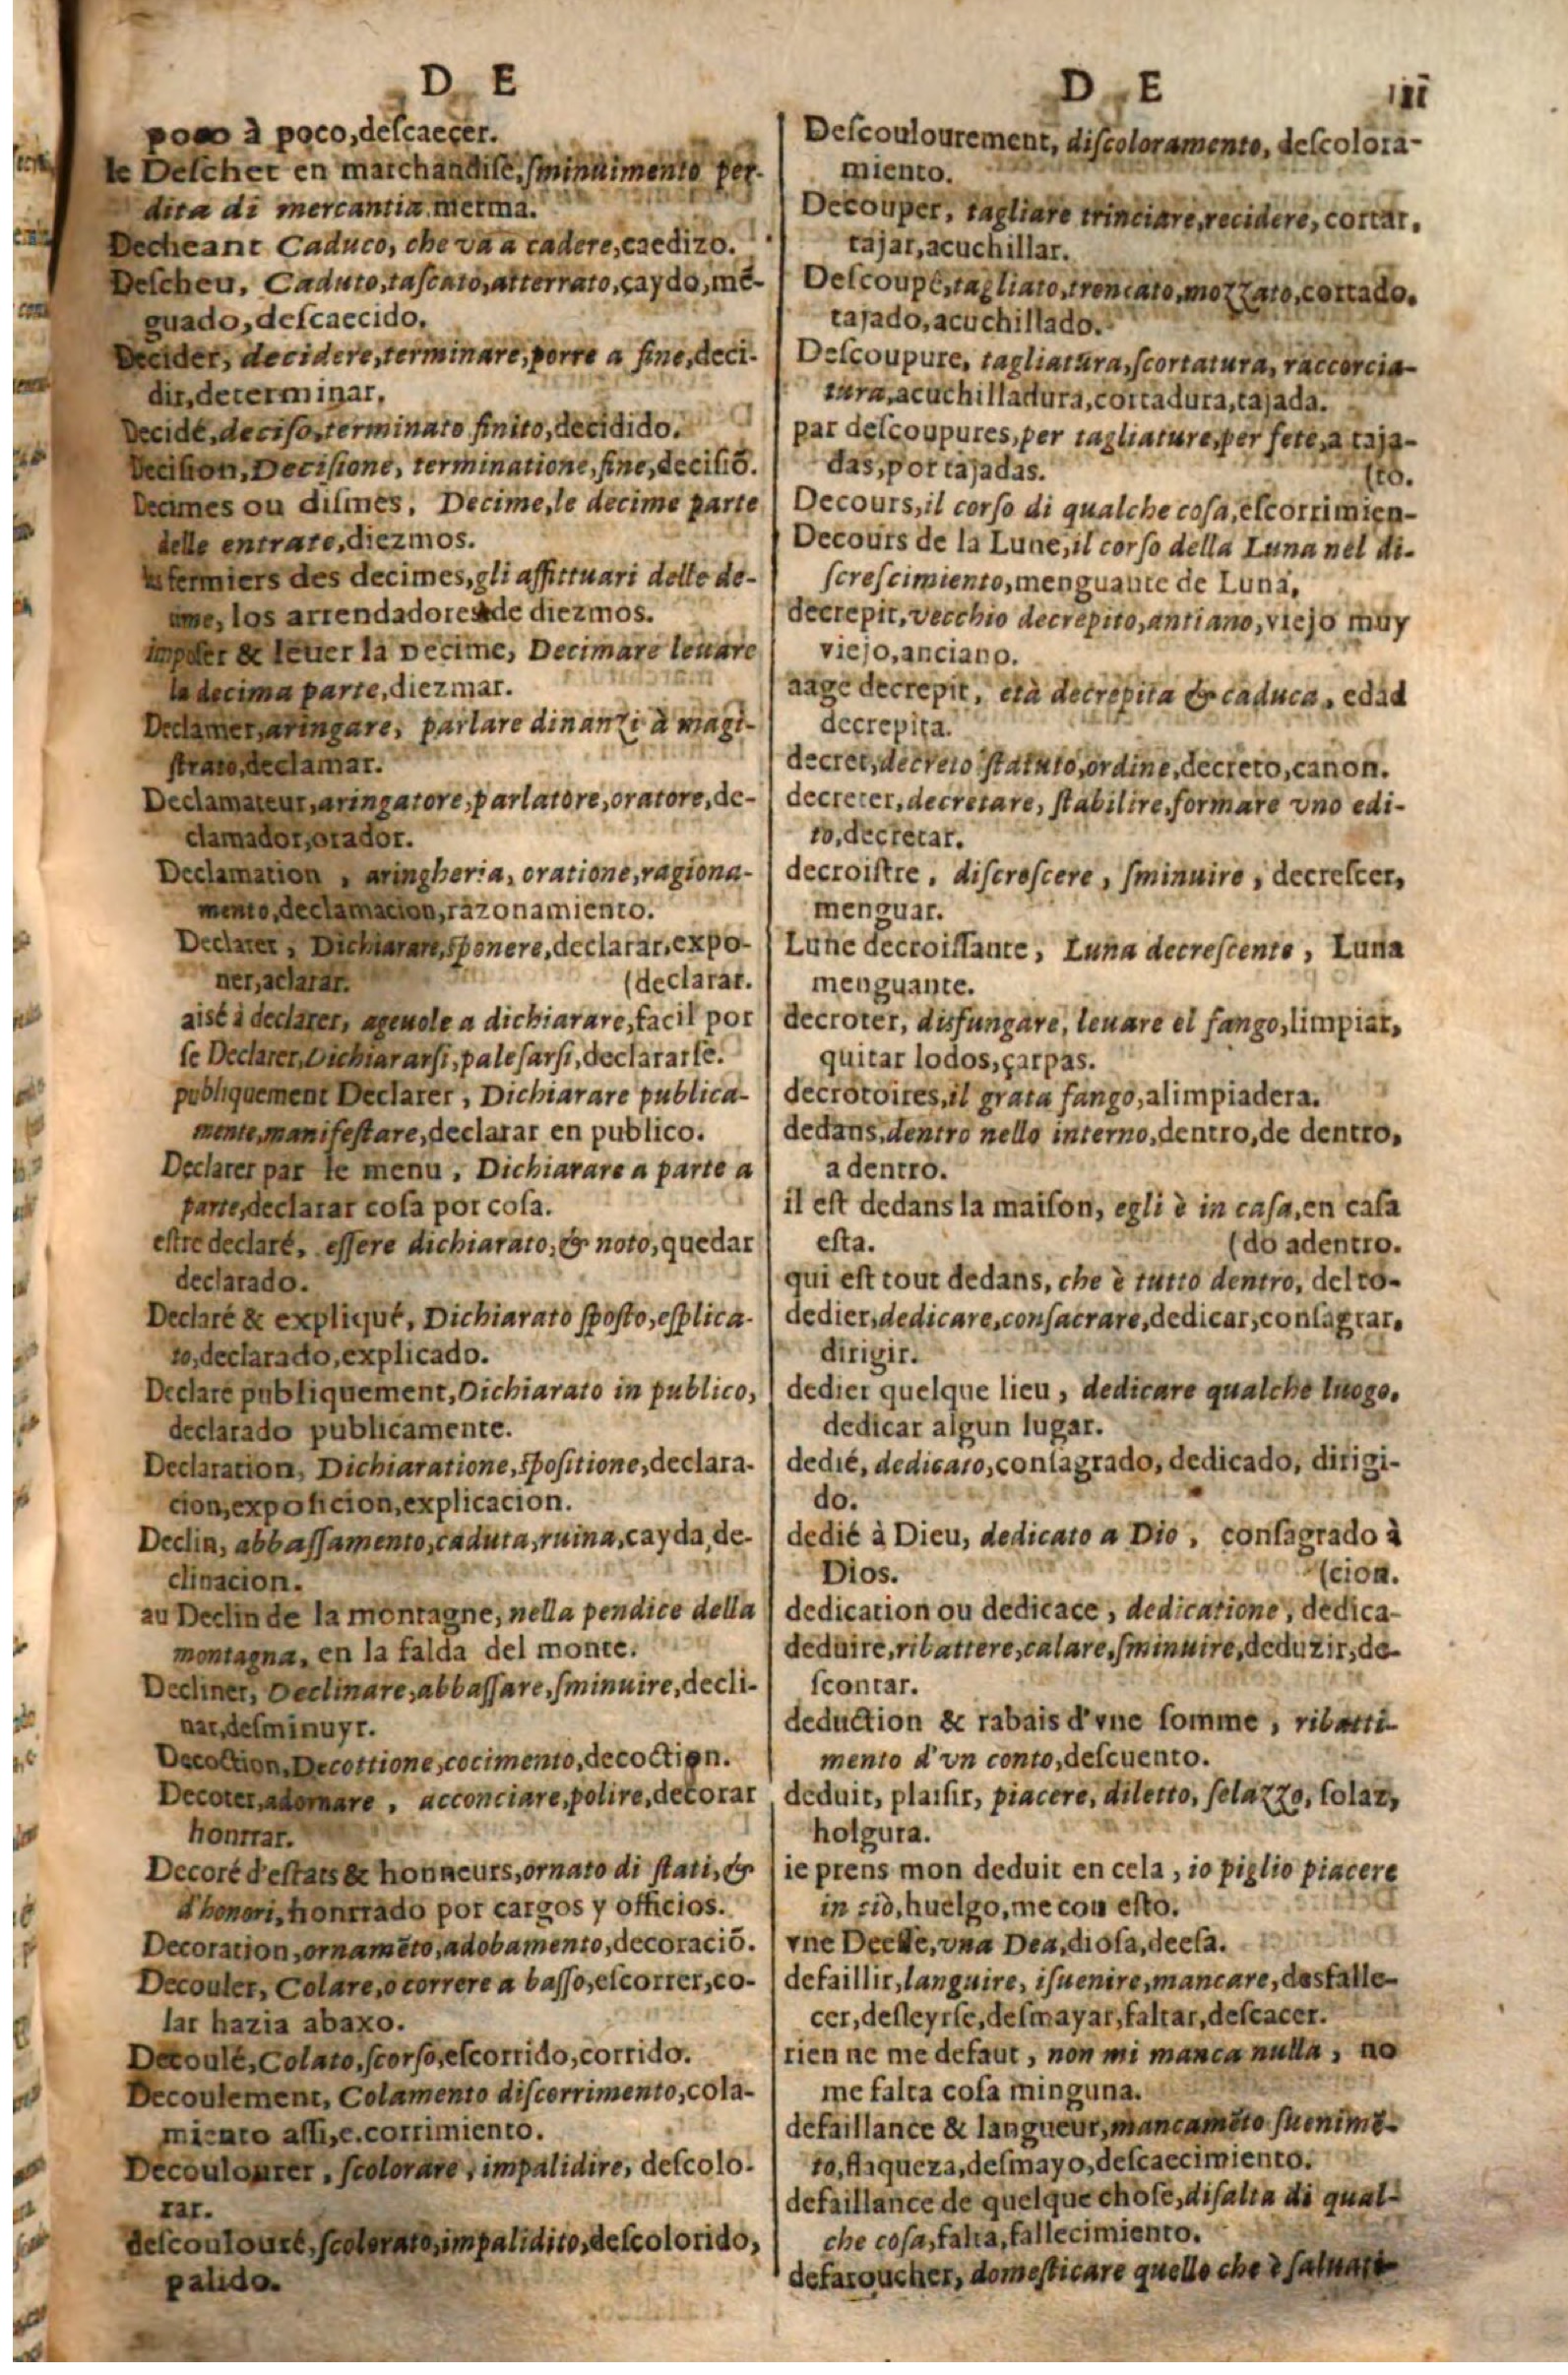 D E
poco à poco,deſcaeçer.
le Deſchet en marchandiſe,ſminuimento per-
dita di mercantia merma.
Decheant Caduco, che va a cadere,caedizo.
Deſcheu, Caduto,taſcato,atterrato,çaydo,mē-
guado,deſcaecido.
Decider, decidere,terminare,porre a fine,deci-
dir,determinar.
Decidé,deciſo,terminato finito,decidido.
Deciſion,Deciſione, terminatione,fine,deciſiō.
Decimes ou diſmes, Decime,le decime parte
delle entrate,diezmos.
les fermiers des decimes,gli affittuari delle de-
cime, los arrendadores de diezmos.
impoſer & leuer la Decime, Decimare leuare
la decima parte,diezmar.
Declamer,aringare, parlare dinanzi à magi-
ſtrato,declamar.
Declamateur,aringatore,parlatore,oratore,de-
clamador,orador.
Declamation , aringheria, oratione,ragiona-
mento,declamacion,razonamiento.
Declarer , Dichiarare,ſponere,declarar,expo-
ner,aclarar. (declarar.
aisé à declarer, ageuole a dichiarare,facil por
ſe Declarer,Dichiararſi,paleſarſi,declararſe.
publiquement Declarer , Dichiarare publica-
mente,manifeſtare,declarar en publico.
Declarer par le menu , Dichiarare a parte a
parte,declarar coſa por coſa.
eſtre declaré, eſſere dichiarato,& noto,quedar
declarado.
Declaré & expliqué, Dichiarato ſpoſto,eſplica-
to,declarado,explicado.
Declaré publiquement,Dichiarato in publico,
declarado publicamente.
Declaration, Dichiaratione,ſpoſitione,declara-
cion,expoſicion,explicacion.
Declin, abbaſſamento,caduta,ruina,cayda,de-
clinacion.
au Declin de la montagne, nella pendice della
montagna, en la falda del monte.
Decliner, Declinare,abbaſſare,ſminuire,decli-
nar,deſminuyr.
Decoction,Decottione,cocimento,decoction.
Decorer,adornare , acconciare,polire,decorar
honrrar.
Decoré d'eſtats & honneurs,ornato di ſtati,&
d'honori,honrrado por cargos y officios.
Decoration,ornamēto,adobamento,decoraciō.
Decouler, Colare,o correre a baſſo,eſcorrer,co-
lar hazia abaxo.
Decoulé,Colato,ſcorſo,eſcorrido,corrido.
Decoulement, Colamento diſcorrimento,cola-
miento aſſi,e.corrimiento.
Decoulourer , ſcolorare , impalidire, deſcolo-
rar.
deſcoulouré,ſcolorato,impalidito,deſcolorido,
palido.
D E
Deſcoulourement, diſcoloramento, deſcolora-
miento.
Decouper, tagliare trinciare,recidere, cortar,
tajar,acuchillar.
Deſcoupé,tagliato,troncato,mozzato,cortado,
tajado,acuchillado.
Deſcoupure, tagliatura,ſcortatura, raccorcia-
tura,acuchilladura,cortadura,tajada.
par deſcoupures,per tagliature,per fete,a taja-
das,por tajadas. (to.
Decours,il corſo di qualche coſa,eſcorrimien-
Decours de la Lune,il corſo della Luna nel di-
ſcreſcimiento,menguante de Luna,
decrepit,vecchio decrepito,antiano,viejo muy
viejo,anciano.
aage decrepit, età decrepita & caduca, edad
decrepita.
decret,decreto ſtatuto,ordine,decreto,canon.
decreter,decretare, ſtabilire,formare vno edi-
to,decretar.
decroiſtre , diſcreſcere , ſminuire , decreſcer,
menguar.
Lune decroiſſante, Luna decreſcente , Luna
menguante.
decroter, disfungare, leuare el fango,limpiar,
quitar lodos,çarpas.
decrotoires,il grata fango,alimpiadera.
dedans,dentro nello interno,dentro,de dentro,
a dentro.
il eſt dedans la maiſon, egli è in caſa,en caſa
eſta. (do adentro.
qui eſt tout dedans, che è tutto dentro, del to-
dedier,dedicare,conſacrare,dedicar,conſagrar,
dirigir.
dedier quelque lieu , dedicare qualche luogo,
dedicar algun lugar.
dedié, dedicato,conſagrado, dedicado, dirigi-
do.
dedié à Dieu, dedicato a Dio , conſagrado à
Dios. (cion.
dedication ou dedicace , dedicatione , dedica-
deduire,ribattere,calare,ſminuire,deduzir,de-
ſcontar.
deduction & rabais d'vne ſomme , ribatti-
mento d'vn conto,deſcuento.
deduit, plaiſir, piacere, diletto, ſelazzo, ſolaz,
holgura.
ie prens mon deduit en cela , io piglio piacere
in ciò,huelgo,me con eſto.
vne Deeſſe,vna Dea,dioſa,deeſa.
defaillir,languire, iſuenire,mancare,desfalle-
cer,deſleyrſe,deſmayar,faltar,deſcacer.
rien ne me defaut , non mi manca nulla , no
me falta coſa minguna.
defaillance & langueur,mancamēto ſuenimē-
to,flaqueza,deſmayo,deſcaecimiento.
defaillance de quelque choſe,difalta di qual-
che coſa,falta,fallecimiento.
defaroucher, domeſticare quello che è ſaluati-